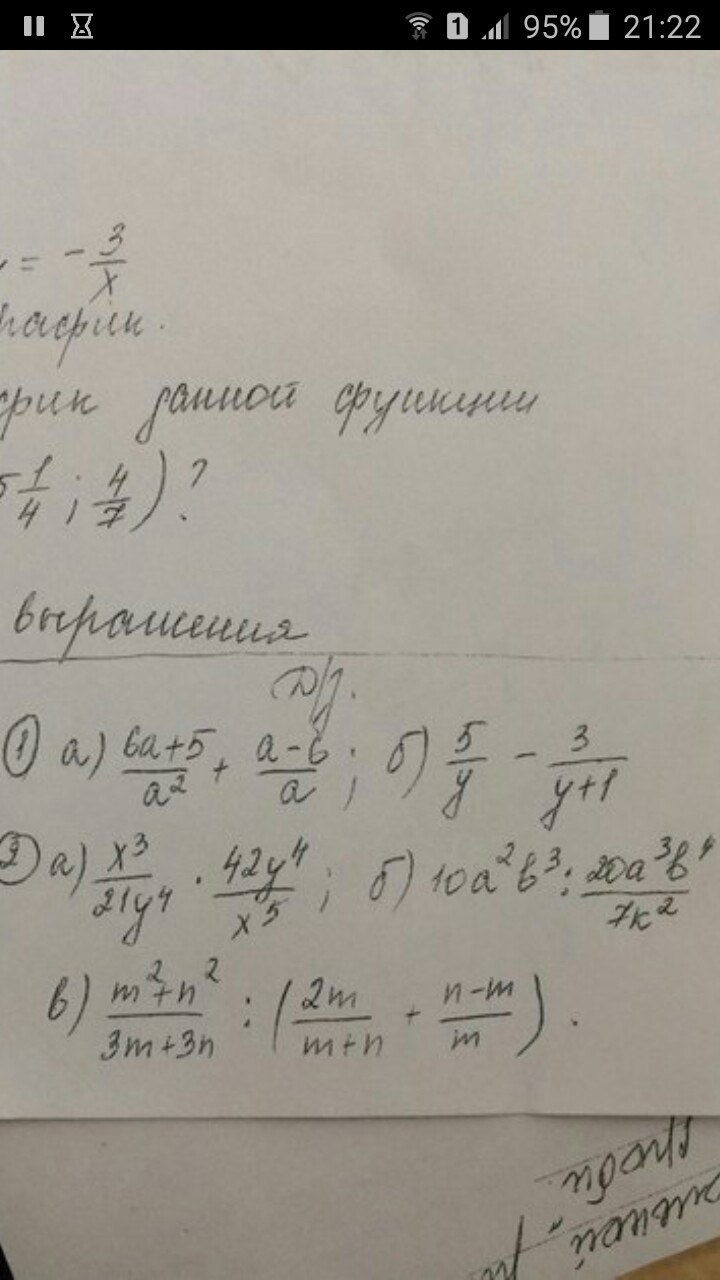 1 95% 21:22
= -3/x
график.
фик данной функции
5 1/4 ; 4/7 ) ?
выражения
Д/з.
① а) 6a+5/a² + a-6/a ; б) 5/y - 3/y+1
② а) x³/21y⁴ · 42y⁴/x⁵ ; б) 10a²b³ : 20a³b⁴/7k²
в) m²+n²/3m+3n : ( 2m/m+n + n-m/m ) .